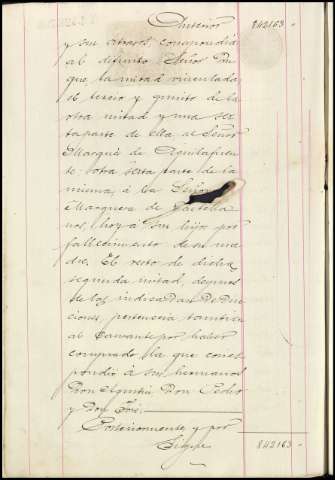 Anterior 842163 -
y sus atrasos correspondía
al difunto Señor Du
que, la mitad vinculada,
el tercio y quinto de la
otra mitad y una sex
ta parte de ella al Señor
Marqués de Aguilafuen
te: otra sexta parte de la
misma, á la Señora
Marquesa de Castella
nos, hoy á sus hijos por
fallecimiento de su ma
dre. El resto de dicha
segunda mitad, despues
de las indicadas deduc
ciones, pertenecía tambien
al Causante por haber
comprado la que corres
pondió á sus hermanos
Don Agustin, Don Pedro
y Don José.
Posteriormente y por
Sigue 842163 -